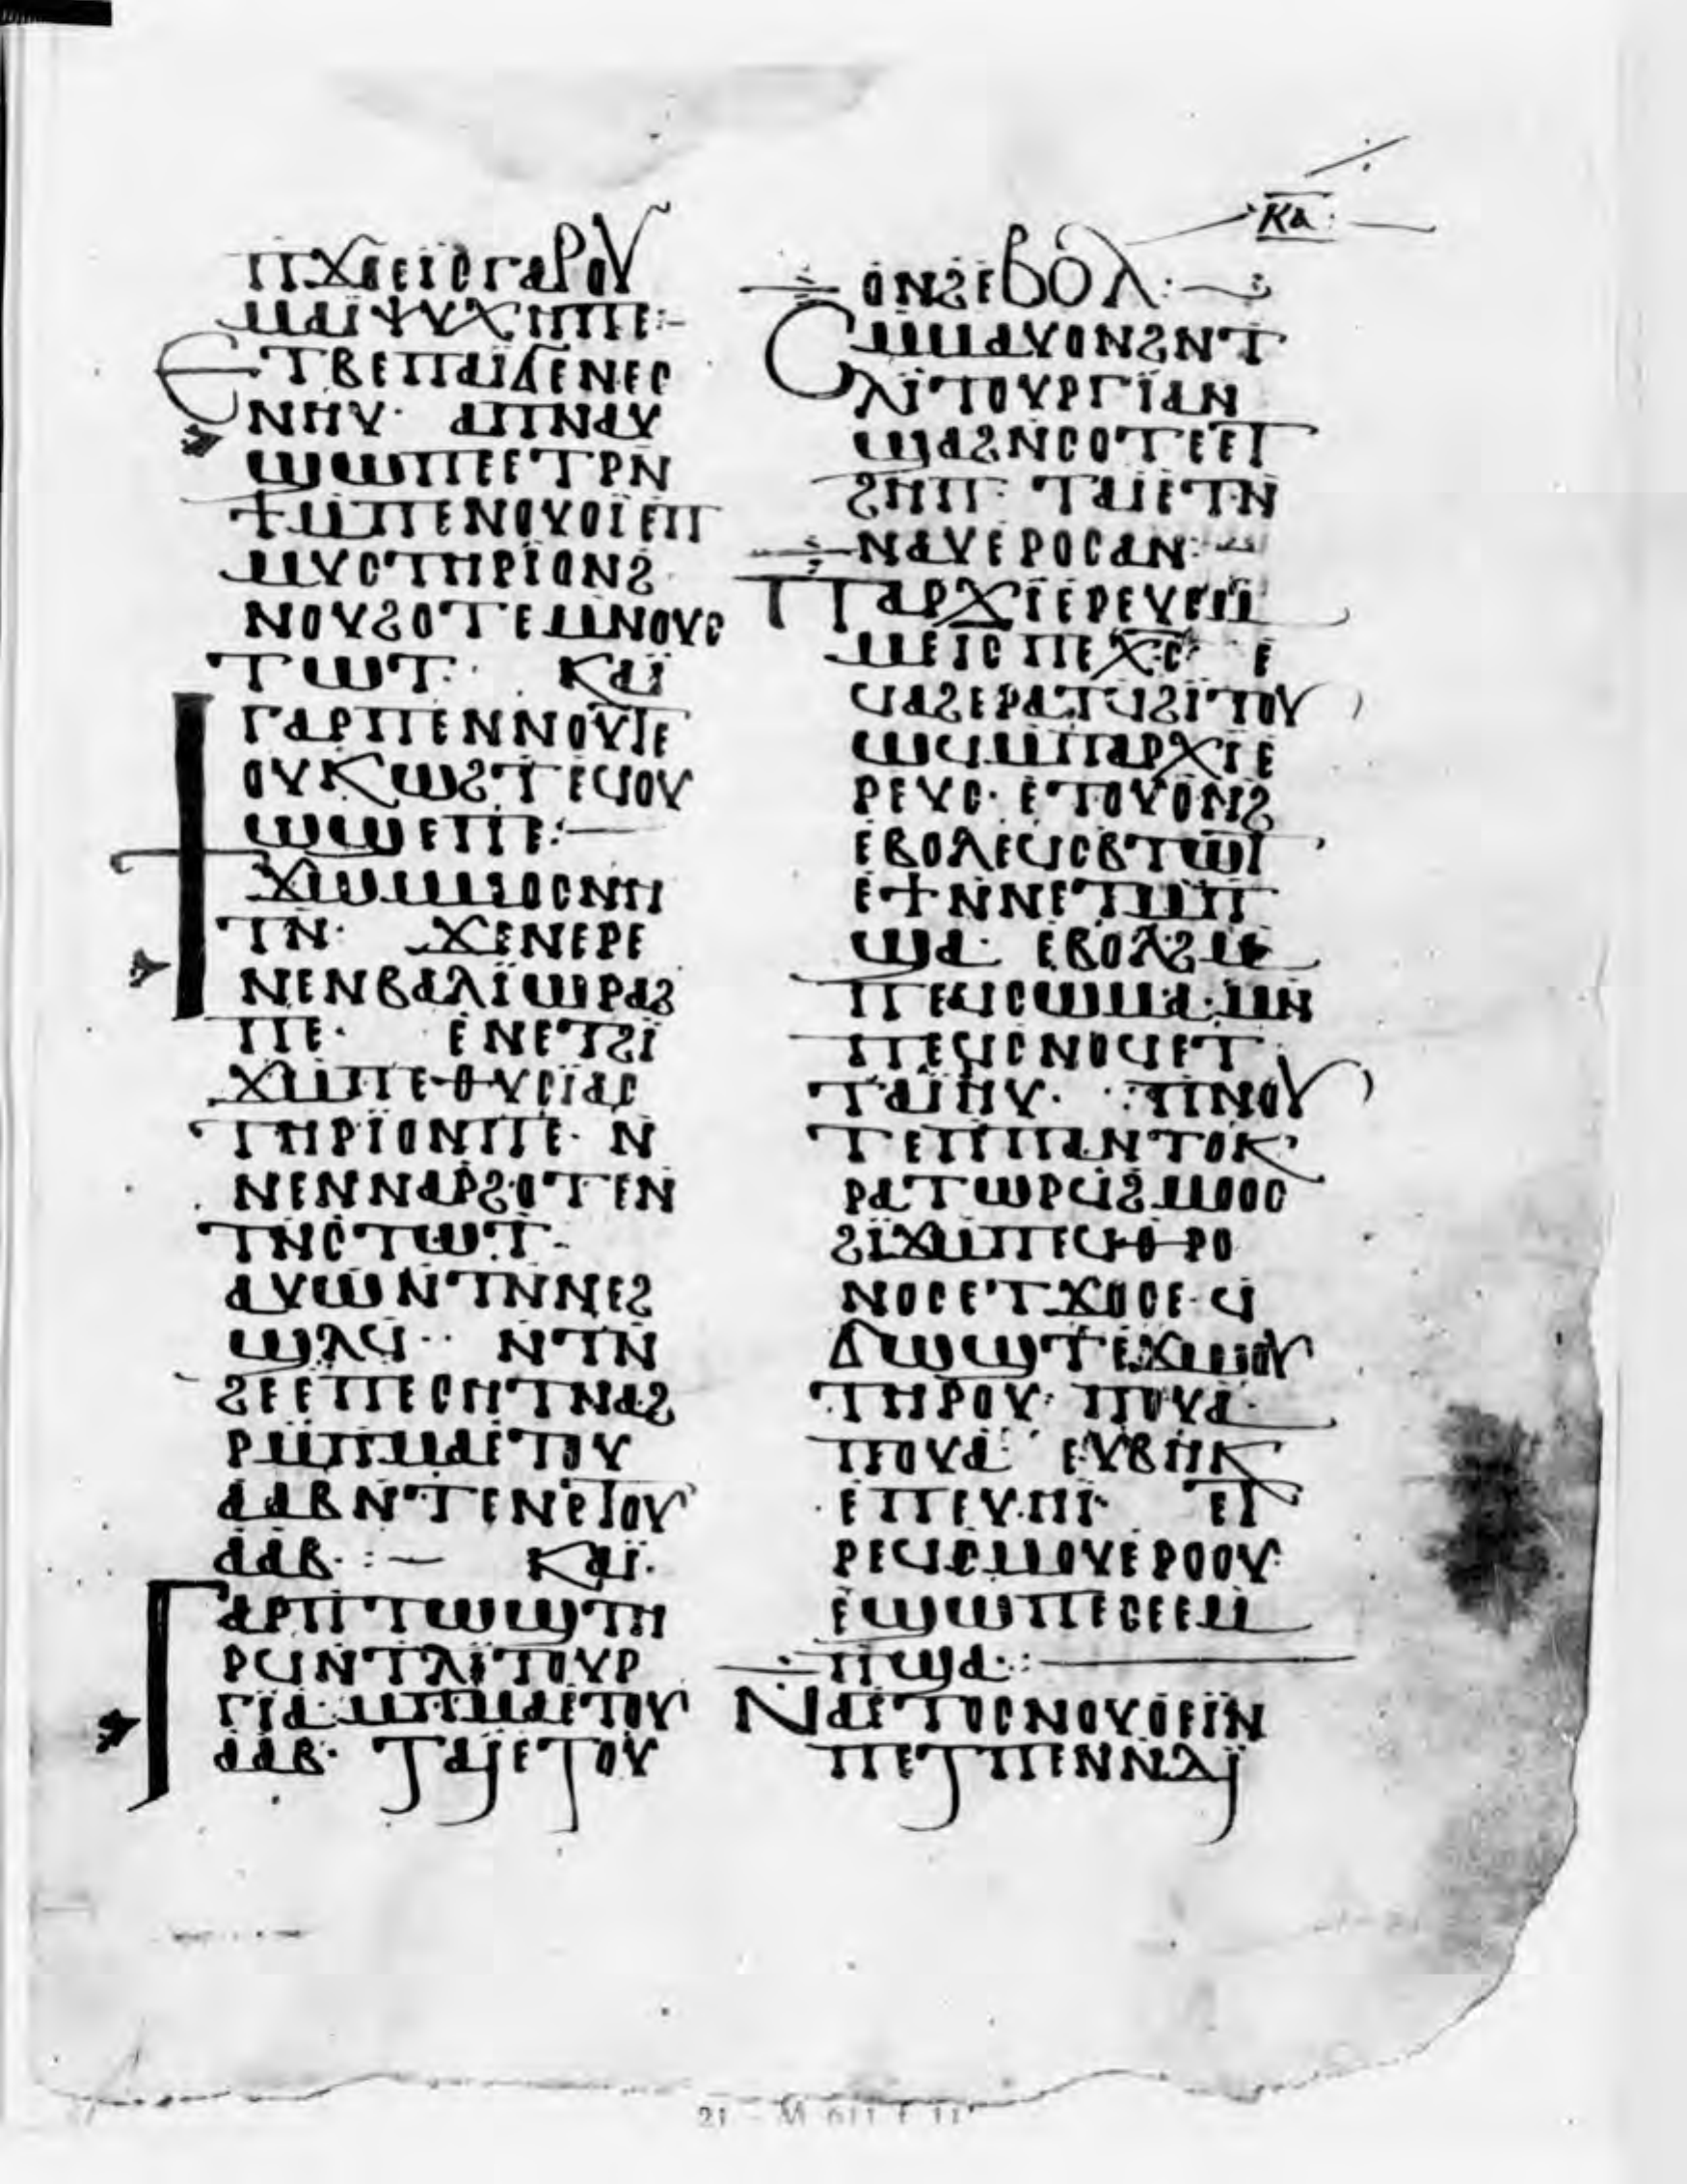 ⲕⲁ
ⲡϫⲟⲉⲓⲥⲅⲁⲣⲟⲩ
ⲙⲁⲓⲯⲩⲭⲏⲡⲉ:–
ⲉⲧⲃⲉⲡⲁⲓ̈ϭⲉⲛⲉⲥ
ⲛⲏⲩ· ⲁⲡⲛⲁⲩ
ϣⲱⲡⲉⲉⲧⲣⲛ
ϯⲙⲡⲉⲛⲟⲩⲟⲓ̈ⲉⲡ
ⲙⲩⲥⲧⲏⲣⲓ̈ⲟⲛϩ
ⲛⲟⲩϩⲟⲧⲉⲙⲛⲟⲩⲥ
ⲧⲱⲧ· ⲕⲁⲓ̈
ⲅⲁⲣⲡⲉⲛⲛⲟⲩⲧⲉ
ⲟⲩⲕⲱϩⲧⲉϥⲟⲩ
ⲱⲱⲉⲡⲉ:—
ϯϫⲱⲙⲙⲟⲥⲛⲏ
ⲧⲛ· ϫⲉⲛⲉⲣⲉ
ⲛⲉⲛⲃⲁⲗⲓ̈ⲱⲣⲁϩ
ⲡⲉ· ⲉⲛⲉⲧϩⲓ̈
ϫⲙⲡⲉⲑⲩⲥⲓ̈ⲁⲥ
ⲧⲏⲣⲓ̈ⲟⲛⲡⲉ· ⲛ
ⲛⲉⲛⲛⲁⲣϩⲟⲧⲉⲛ
ⲧⲛⲥⲧⲱⲧ·
ⲁⲩⲱⲛⲧⲛⲛⲉϩ
ϣⲗϥ·· ⲛⲧⲛ
ϩⲉⲉⲡⲉⲥⲏⲧⲛⲁϩ
ⲣⲙⲡⲙⲁⲉⲧⲟⲩ
ⲁⲁⲃⲛⲧⲉⲛⲉⲧⲟⲩ
ⲁⲁⲃ·:— ⲕⲁⲓ̈·
ⲅⲁⲣⲡⲧⲱϣⲧⲏ
ⲣϥⲛⲧⲗⲓ̈ⲧⲟⲩⲣ
ⲅⲓ̈ⲁⲙⲡⲙⲁⲉⲧⲟⲩ
ⲁⲁⲃ· ⲧⲁⲓⲉⲧⲟⲩ
ⲟⲛϩⲉⲃⲟⲗ:—
ⲥⲙⲙⲁⲩⲟⲛϩⲛⲧ
ⲗⲓ̈ⲧⲟⲩⲣⲅⲓ̈ⲁⲛ
ϣⲁϩⲛⲥⲟⲧⲉⲉⲧ
ϩⲏⲡ· ⲧⲁⲓⲉⲧⲛ
ⲛⲁⲩⲉⲣⲟⲥⲁⲛ:—
ⲡⲁⲣⲭⲓⲉⲣⲉⲩⲥⲙ
ⲙⲉⲓⲥⲡⲉⲭⲥ· ⲉ
ϥⲁϩⲉⲣⲁⲧϥϩⲓ̈ⲧⲟⲩ
ⲱϥⲙⲡⲁⲣⲭⲓⲉ
ⲣⲉⲩⲥ· ⲉⲧⲟⲩⲟⲛϩ
ⲉⲃⲟⲗⲉϥⲥⲃⲧⲱⲧ
ⲉϯⲛⲛⲉⲧⲙⲡ
ϣⲁ· ⲉⲃⲟⲗϩⲙ
ⲡⲉϥⲥⲱⲙⲁ·ⲙⲛ
ⲡⲉϥⲥⲛⲟϥⲉⲧ
ⲧⲁⲓ̈ⲏⲩ· ⲡⲛⲟⲩ
ⲧⲉⲡⲡⲁⲛⲧⲟⲕ
ⲣⲁⲧⲱⲣϥϩⲙⲟⲟⲥ
ϩⲓ̈ϫⲙⲡⲉϥⲑⲣⲟ
ⲛⲟⲥⲉⲧϫⲟⲥⲉ·ϥ
ϭⲱϣⲧⲉϫⲱⲟⲩ
ⲧⲏⲣⲟⲩ· ⲡⲟⲩⲁ·
ⲡⲟⲩⲁ· ⲉⲩⲃⲏⲕ
ⲉⲡⲉⲩⲏⲓ̈· ⲉⲧ
ⲣⲉϥⲥⲙⲟⲩⲉⲣⲟⲟⲩ·
ⲉϣⲱⲡⲉⲥⲉⲉⲙ
ⲡϣⲁ·:—
ⲛⲁⲉⲧⲟⲥⲛⲟⲩⲟⲉⲓ̈ⲛ
ⲡⲉⲧⲡⲉⲛⲛⲗⲓ̈